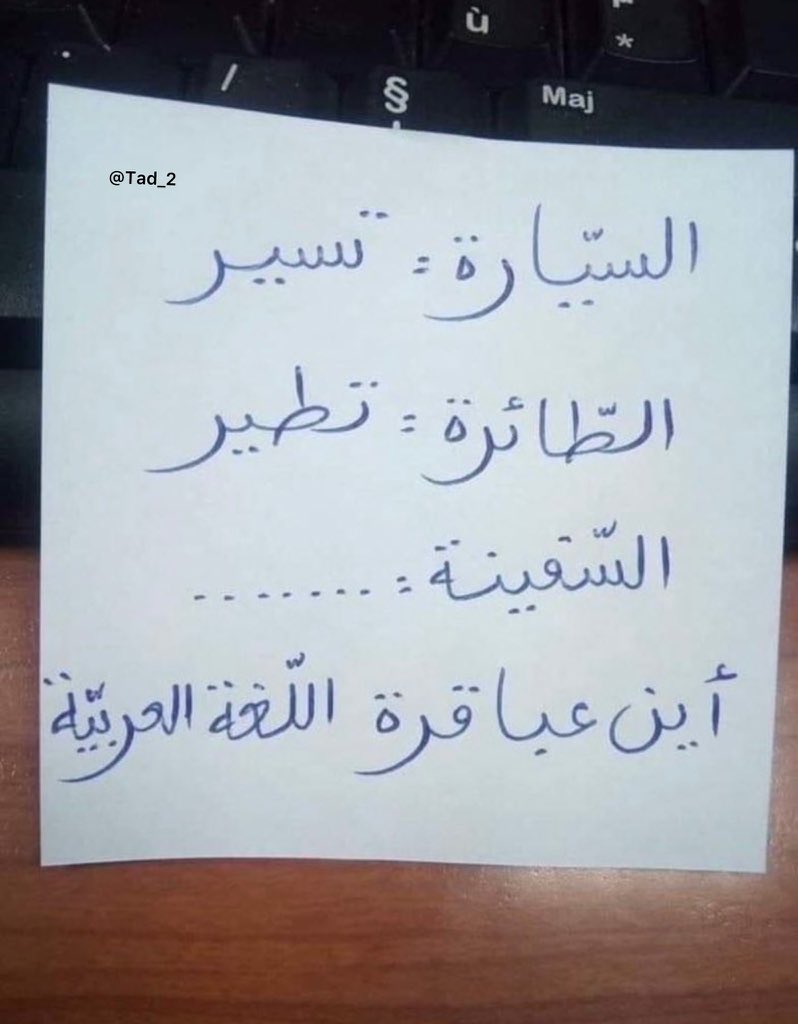 ù
*
/
§
Maj
@Tad_2
السّيّارة : تسير
الطّائرة : تطير
السّفينة : ........
أين عباقرة اللّغة العربيّة